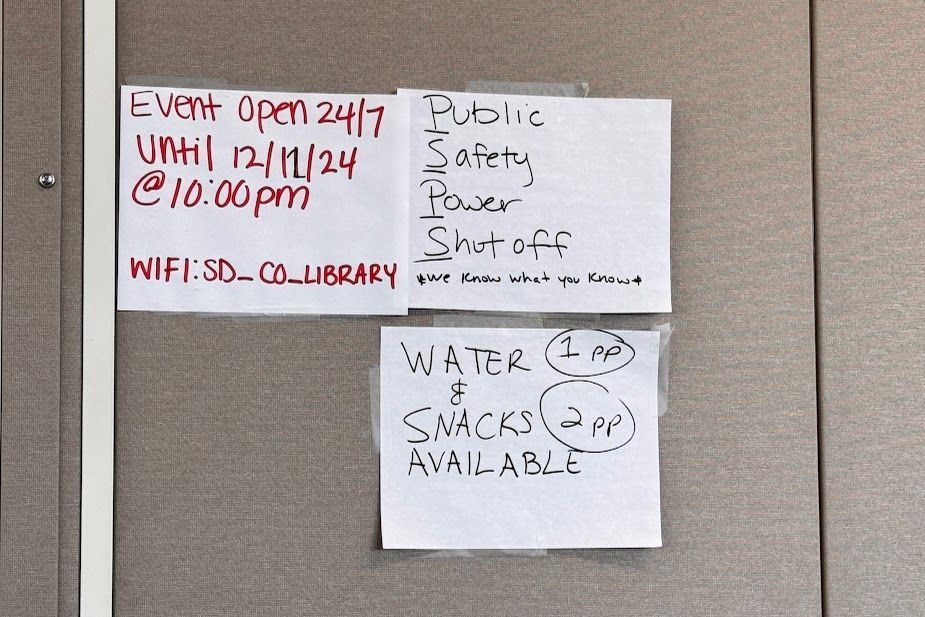 Event Open 24/7
Until 12/11/24
@10:00pm
WIFI:SD_CO_LIBRARY
Public
Safety
Power
Shut off
*we know what you know*
WATER 1 pp
&
SNACKS 2 pp
AVAILABLE